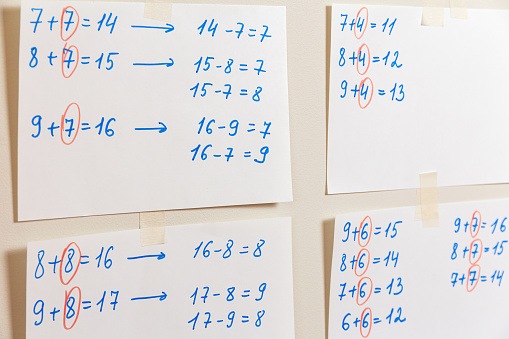 7+7=14 → 14-7=7
8+7=15 → 15-8=7
15-7=8
9+7=16 → 16-9=7
16-7=9
7+4=11
8+4=12
9+4=13
8+8=16 → 16-8=8
9+8=17 → 17-8=9
17-9=8
9+6=15 9+7=16
8+6=14 8+7=15
7+6=13 7+7=14
6+6=12